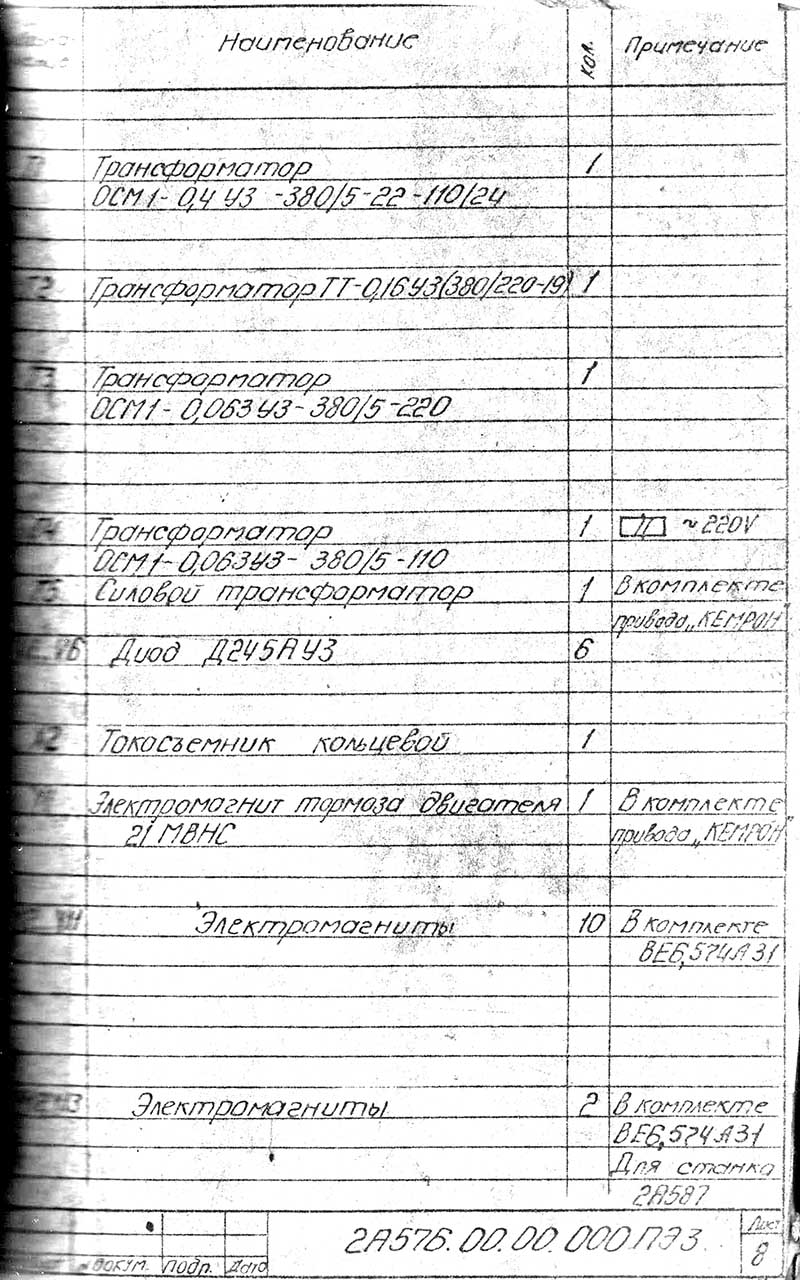 Наименование кол. Примечание
Трансформатор 1
ОСМ1-0,4 У3 -380/5-22-110/24
Т2 Трансформатор ТТ-0,16У3(380/220-19) 1
Т3 Трансформатор 1
ОСМ1-0,063У3-380/5-220
Т4 Трансформатор 1 ~220V
ОСМ1-0,063У3- 380/5-110
Т5 Силовой трансформатор 1 В комплекте
привода „КЕМРОН"
V6 Диод Д245А У3 6
Токосъемник кольцевой 1
Электромагнит тормоза двигателя 1 В комплекте
21 МВНС привода „КЕМРОН"
Электромагниты 10 В комплекте
ВЕ6,574А31
Электромагниты 2 В комплекте
ВЕ6,574А31
Для станка
2А587
2А576.00.00.000.ПЭ3. Лист
докум. Подп. Дата 8